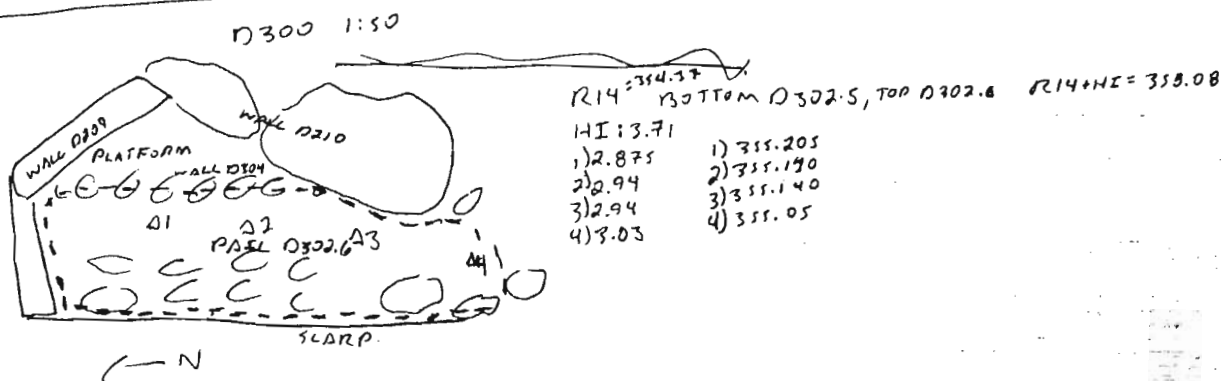 D300 1:50
R14=354.37 BOTTOM D302.5, TOP D302.6 R14+HI = 358.08
HI: 3.71
1) 2.875 1) 355.205
2) 2.94 2) 355.190
3) 2.94 3) 355.140
4) 3.03 4) 355.05
WALL D209
WALL D210
PLATFORM
WALL D304
Δ1 Δ2 Δ3
PAIL D302.6
Δ4
SCARP.
N